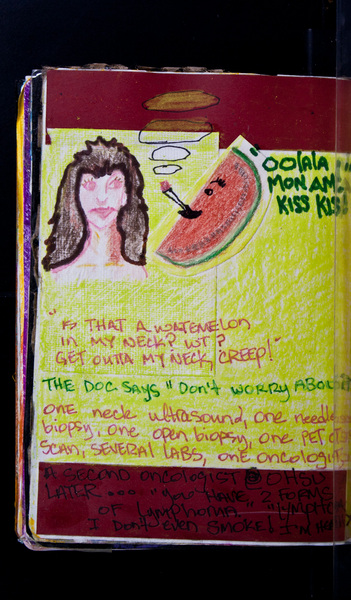 "OOlala
MON AM
KISS KIS
"IS THAT A WATEMELON
IN MY NECK? WT?
GET OUTTA MY NECK, CREEP!"
THE DOC SAYS "DON'T WORRY ABOU
ONE neck ultrasound, one needle
biopsy, one open biopsy, one PET CT
SCAN, SEVERAL LABS, ONE oncologist
A SECOND oncologist @ OHSU
LATER.... "YOU HAVE 2 FORMS
OF lymphoma" "LYMPHO
I DON'T EVEN SMOKE! I'M HEAL